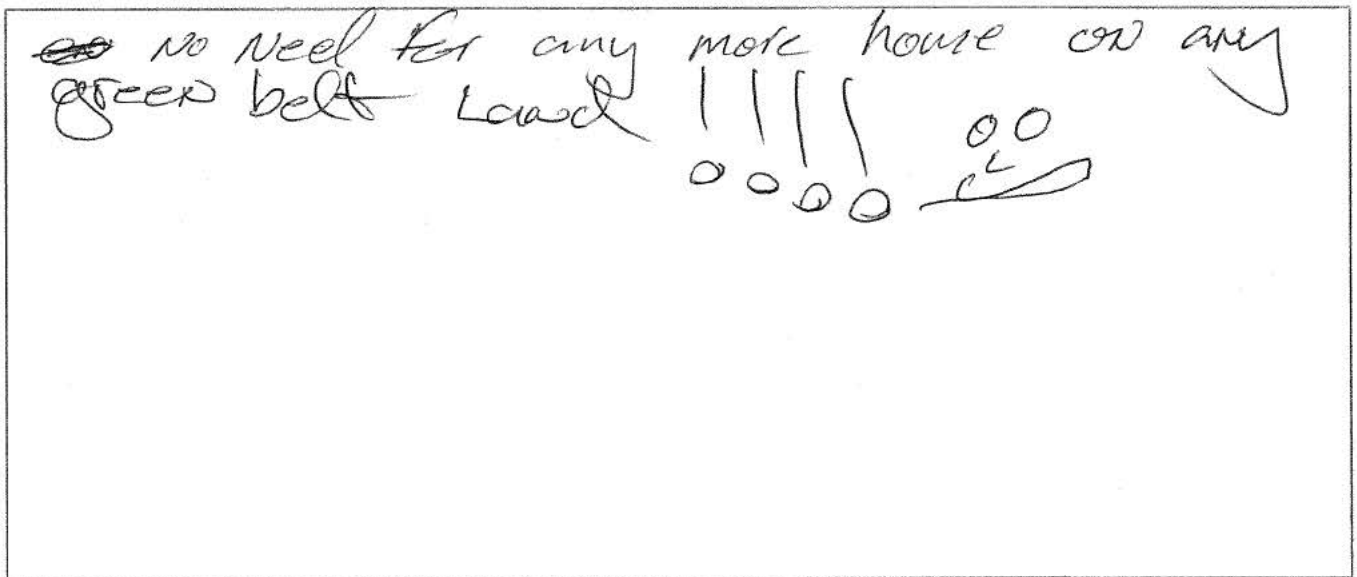 No Need for any more house on any
green belt Land !!!!